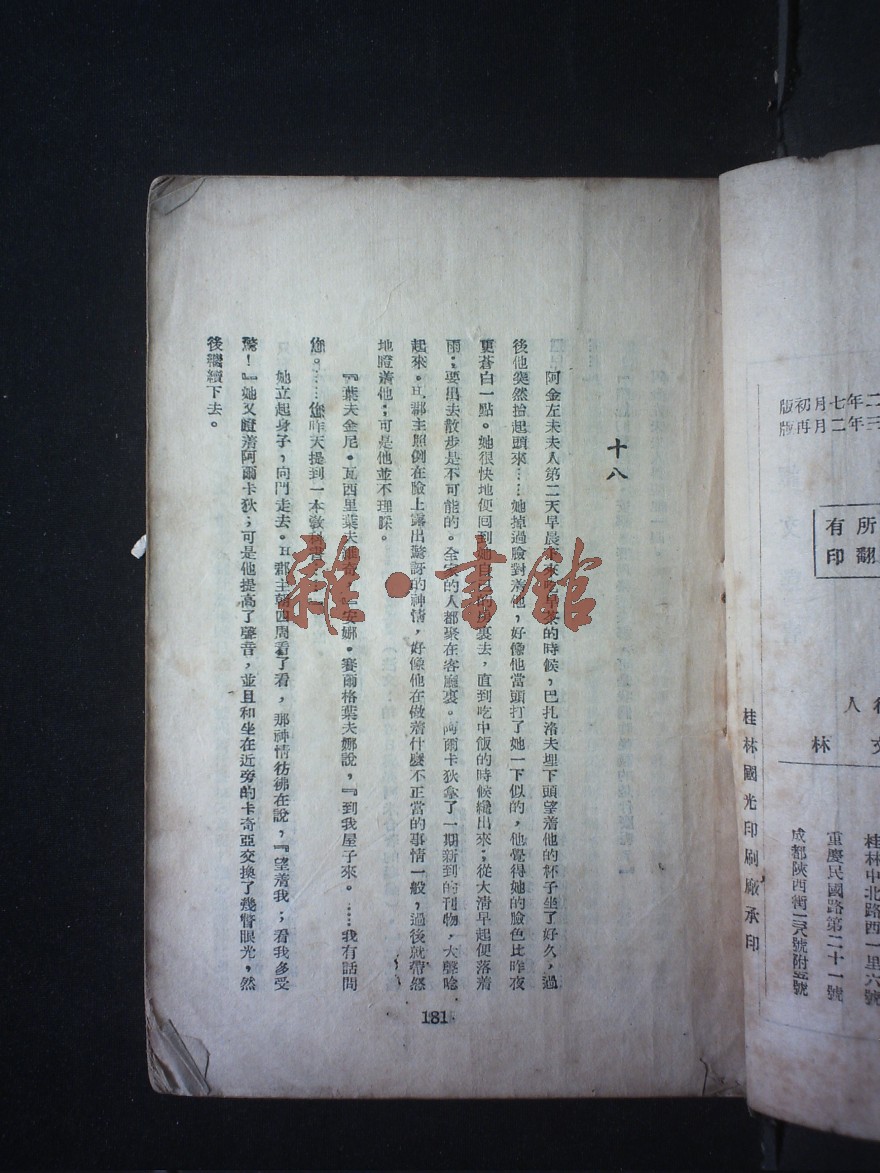 十八
阿金左夫夫人第二天早晨下來吃早茶的時候，巴扎洛夫埋下頭望着他的杯子坐了好久，過
後他突然抬起頭來……她掉過臉對着他，好像他當頭打了她一下似的，他覺得她的臉色比昨夜
更蒼白一點。她很快地便回到她自己的房裏去，直到吃中飯的時候纔出來；從大清早起便落着
雨；要出去散步是不可能的。全家的人都聚在客廳裏。阿爾卡狄拿了一期新到的刊物，大聲唸
起來。H郡主照例在臉上露出驚訝的神情，好像他在做着什麼不正當的事情一般，過後就帶怒
地瞪着他；可是他並不理睬。
『葉夫金尼。瓦西里葉夫 安娜。賽爾格葉夫娜說，『到我屋子來。……我有話問
您。……您昨天提到一本敎科書
她立起身子，向門走去。H郡主朝四周看了看，那神情彷彿在說，『望着我；看我多受
驚！』她又瞪着阿爾卡狄；可是他提高了聲音，並且和坐在近旁的卡奇亞交換了幾瞥眼光，然
後繼續下去。
181
雜·書館
二年七月初版
三年二月再版
所有
翻印
人
林
桂林中北路西一里六號
重慶民國路第二十一號
成都陝西街 號附 號
桂林國光印刷廠承印